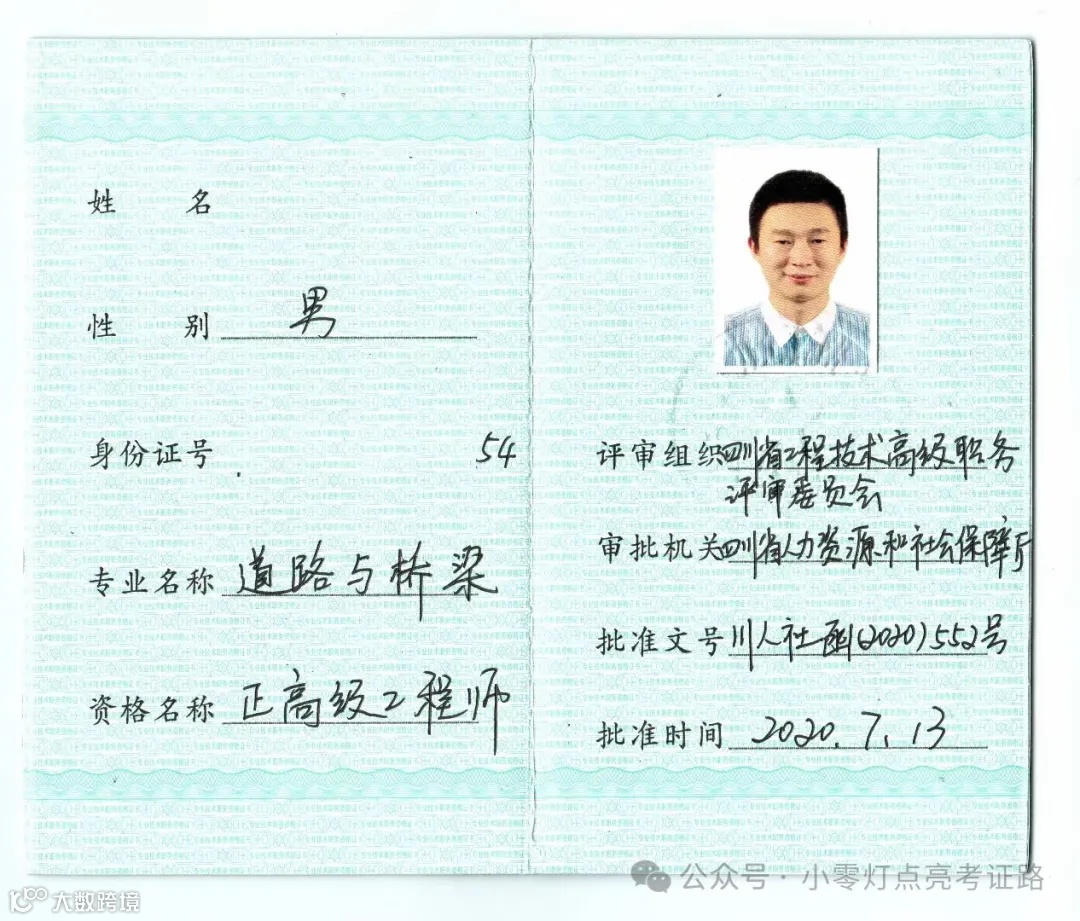 姓 名
性 别 男
身份证号 54
专业名称 道路与桥梁
资格名称 正高级工程师
评审组织 四川省工程技术高级职务
评审委员会
审批机关 四川省人力资源和社会保障厅
批准文号 川人社函(2020)552号
批准时间 2020.7.13
公众号·小零灯点亮考证路
大数跨境